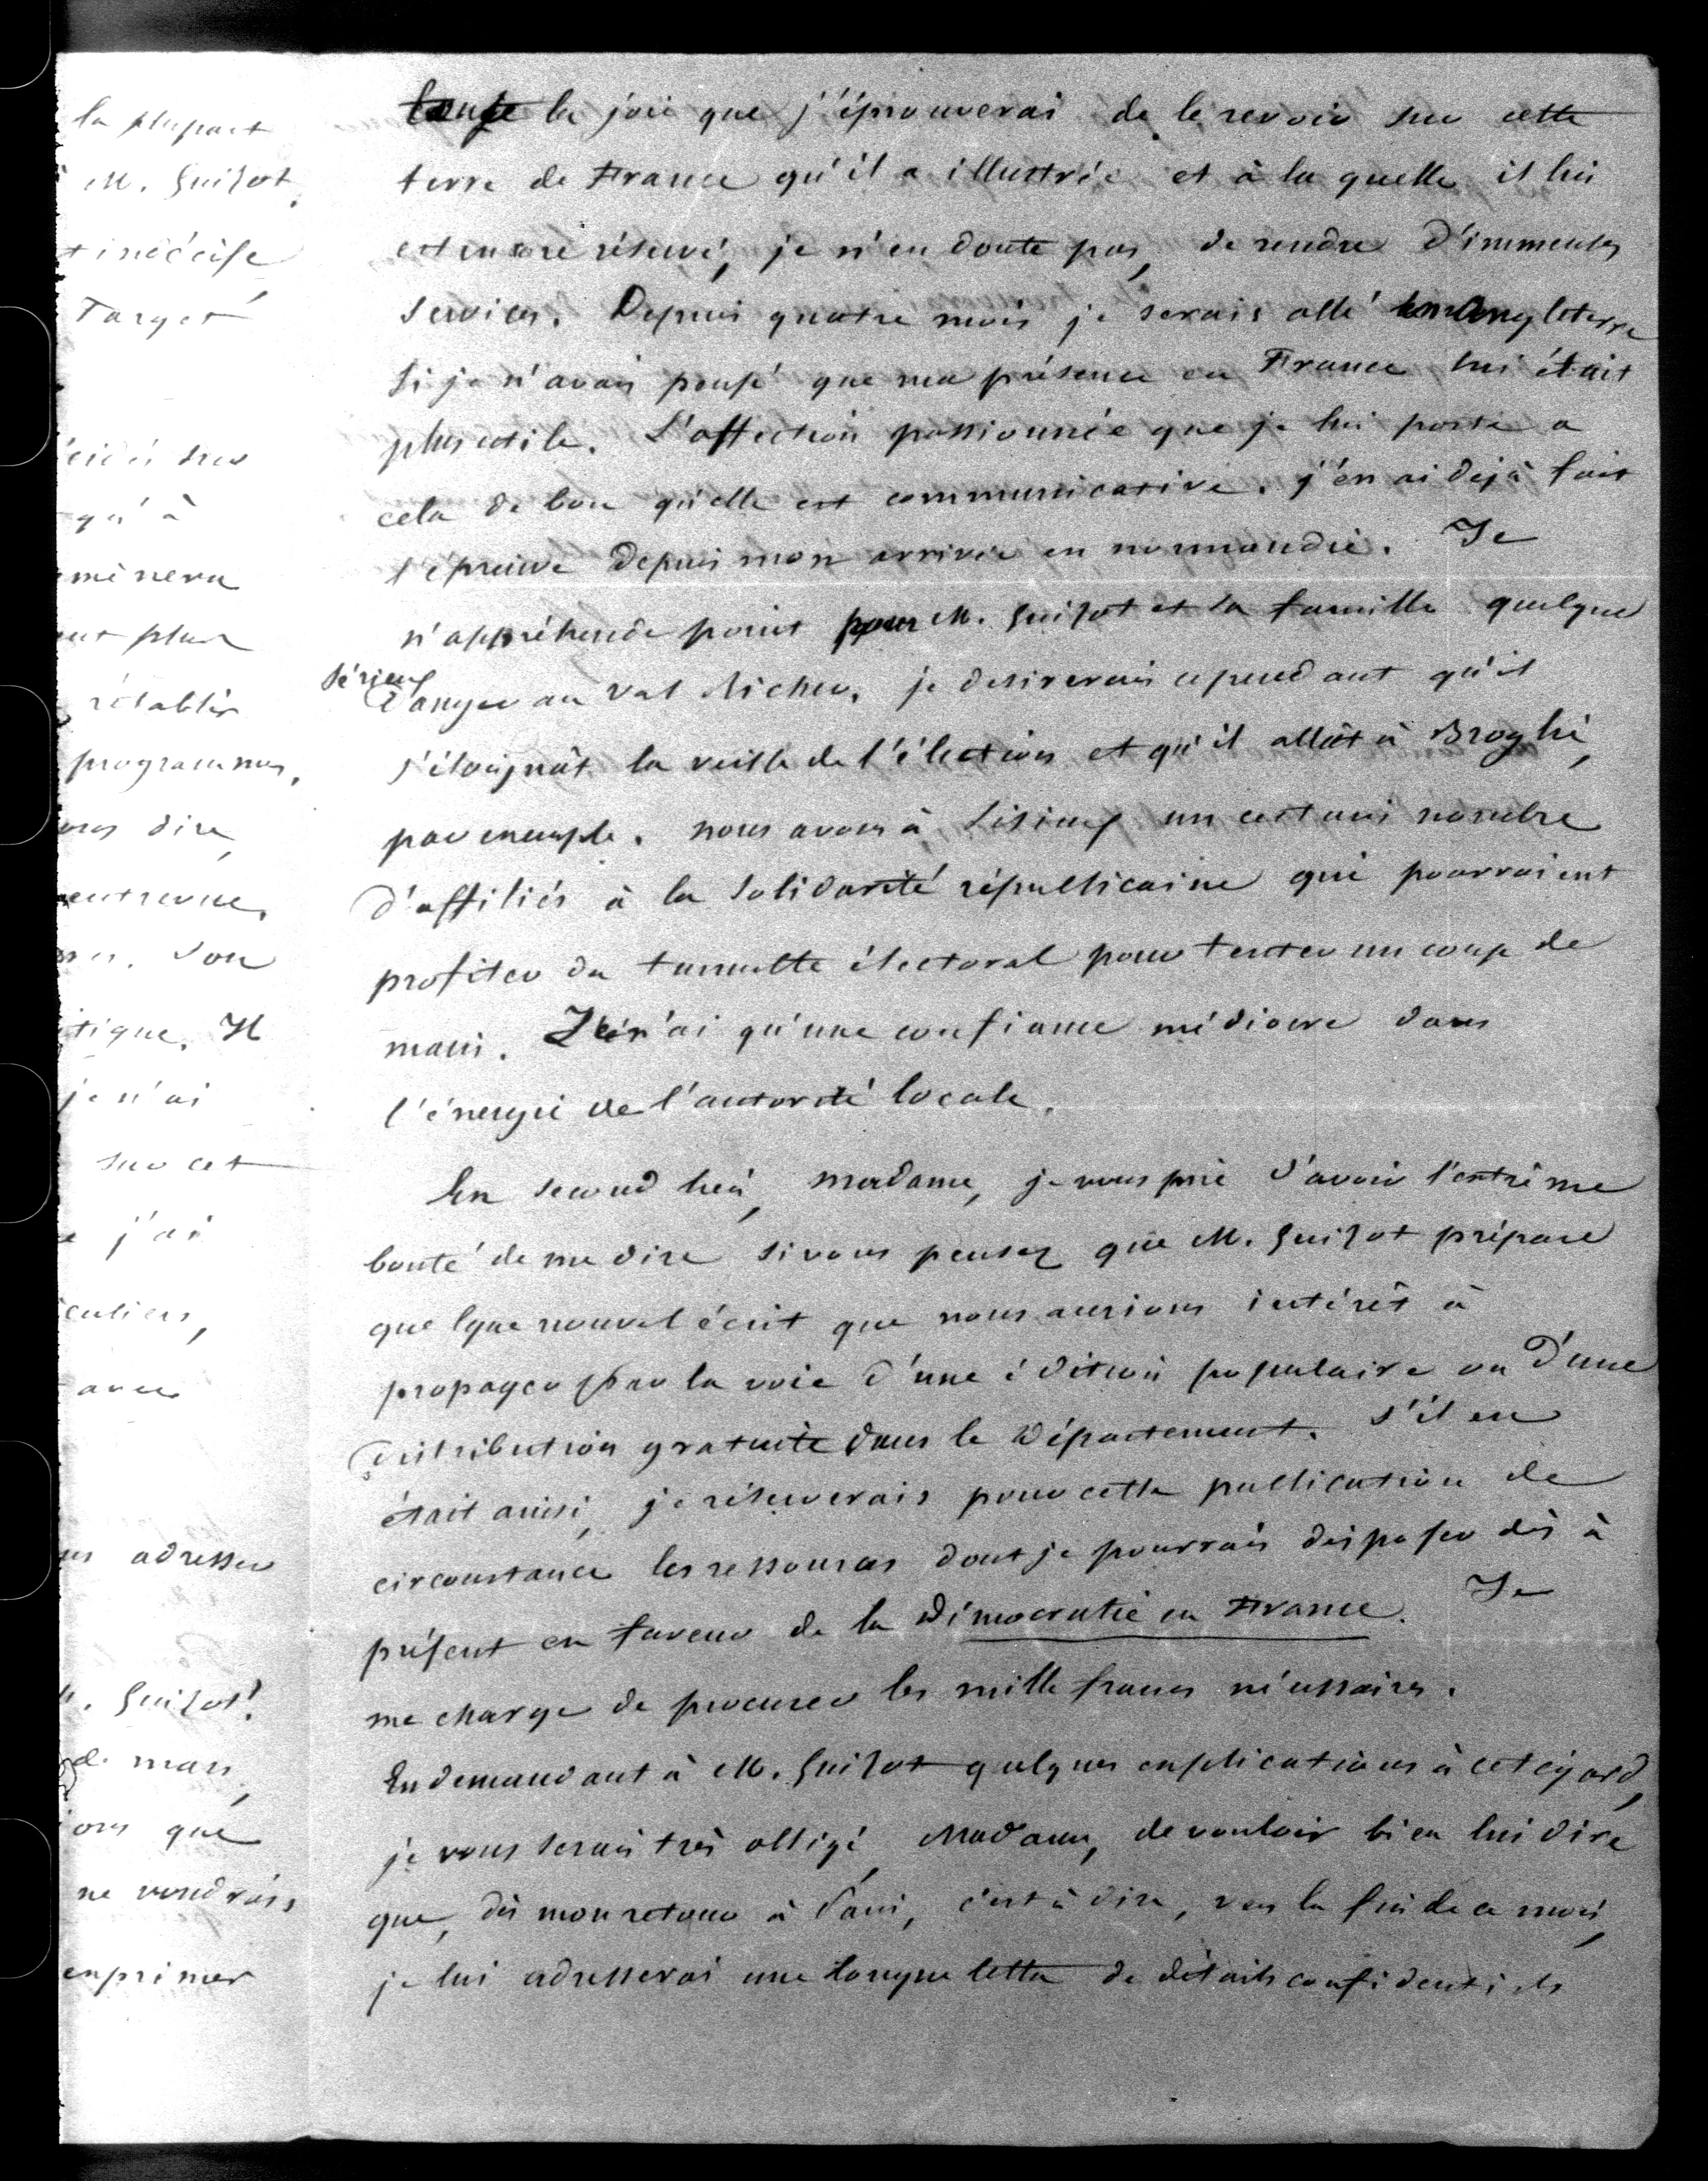 la plupart
M. Guizot,
indécise,
Target
sur
qu'à
mènera
plus
rétablir
programmes,
dire,
entrevue,
Son
tique. Il
je n'ai
sur cet
j'ai
culiers,
avec
adresser
Guizot!
de mars,
que
ne voudrais,
exprimer
toute la joie que j'éprouverai de le revoir sur cette
terre de France qu'il a illustrée et à la quelle il lui
est encore réservé, je n'en doute pas, de rendre d'immenses
services. Depuis quatre mois je serais allé en Angleterre
si je n'avais pensé que ma présence en France lui était
plus utile. L'affection passionnée que je lui porte a
cela de bon qu'elle est communicative. j'en ai déjà fait
l'épreuve depuis mon arrivée en normandie. Je
n'appréhende point pour M. Guizot et sa famille quelque
sérieux
danger au Val Richer. je desirerais cependant qu'il
s'éloignât la veille de l'élection et qu'il allât à Broglie,
par exemple. nous avons à Lisieux un certain nombre
d'affiliés à la Solidarité républicaine qui pourraient
profiter du tumulte électoral pour tenter un coup de
main. Je n'ai qu'une confiance médiocre dans
l'énergie de l'autorité locale.
En second lieu, madame, je vous prie d'avoir l'extrême
bonté de me dire si vous pensez que M. Guizot prépare
quelque nouvel écrit que nous aurions intérêt à
propager par la voie d'une édition populaire ou d'une
distribution gratuite dans le Département. S'il en
était ainsi, je réserverais pour cette publication de
circonstance les ressources dont je pourrais disposer dès à
présent en faveur de la Démocratie en France. Je
me charge de procurer les mille francs nécessaires.
En demandant à M. Guizot quelques explications à cet égard,
je vous serais très obligé, Madame, de vouloir bien lui dire
que, dès mon retour à Paris, c'est à dire, vers la fin de ce mois,
je lui adresserai une longue lettre de détails confidentiels